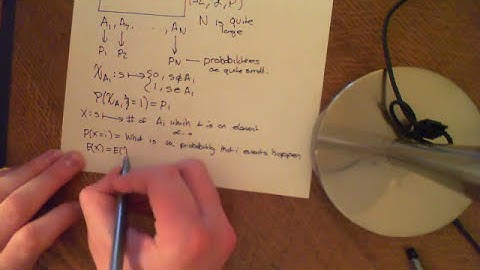 N is quite
large
A₁, A₂, . . . , A_N
P₁ P₂ P_N — probabilities
are quite small.
χ_A₁ : s ↦ { 0, s∉A₁
1, s∈A₁
P(χ_A₁ = 1) = P₁
X: s ↦ # of Ai which s is an element
of
P(X=i) = What is the probability that i events happen
E(X) = E(